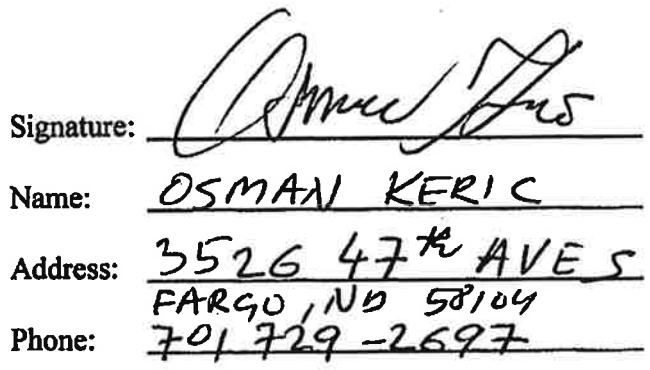 Signature:
Name: OSMAN KERIC
Address: 3526 47th AVE S
FARGO, ND 58104
Phone: 701 729-2697